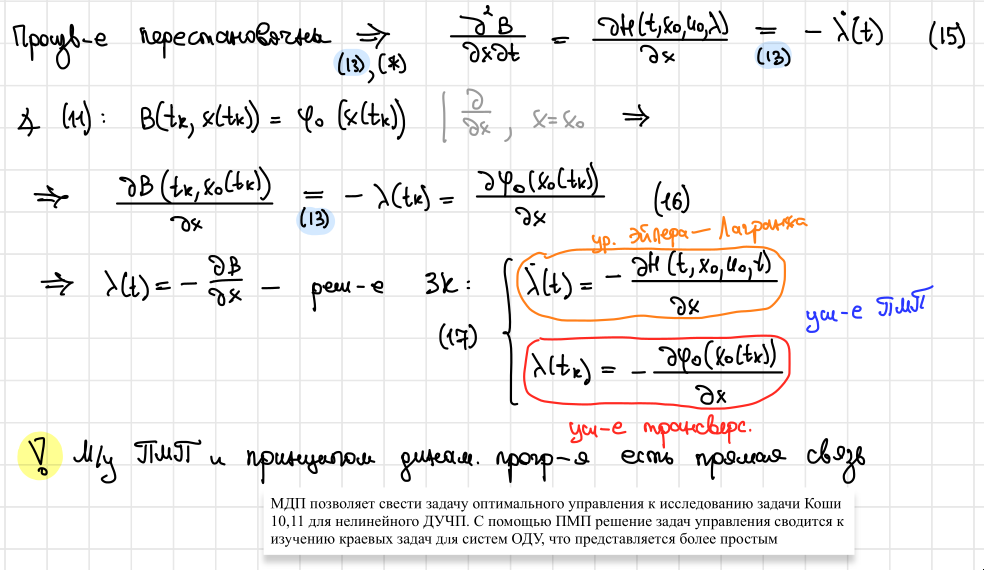 Произв-е перестановочны ⇒ ∂²B/∂x∂t = ∂H(t,x₀,u₀,λ)/∂x = - λ̇(t) (15)
(13),(*) (13)
∡ (11): B(tₖ, x(tₖ)) = φ₀ (x(tₖ)) | ∂/∂x , x=x₀ ⇒
⇒ ∂B(tₖ,x₀(tₖ))/∂x = - λ(tₖ) = ∂φ₀(x₀(tₖ))/∂x (16)
(13)
ур. Эйлера – Лагранжа
⇒ λ(t) = - ∂B/∂x – реш-е ЗК: λ̇(t) = - ∂H(t,x₀,u₀,t)/∂x
усл-е ПМП
(17)
λ(tₖ) = - ∂φ₀(x₀(tₖ))/∂x
усл-е трансверс.
! М/у ПМП и принципом динам. прогр-я есть прямая связь
МДП позволяет свести задачу оптимального управления к исследованию задачи Коши
10,11 для нелинейного ДУЧП. С помощью ПМП решение задач управления сводится к
изучению краевых задач для систем ОДУ, что представляется более простым